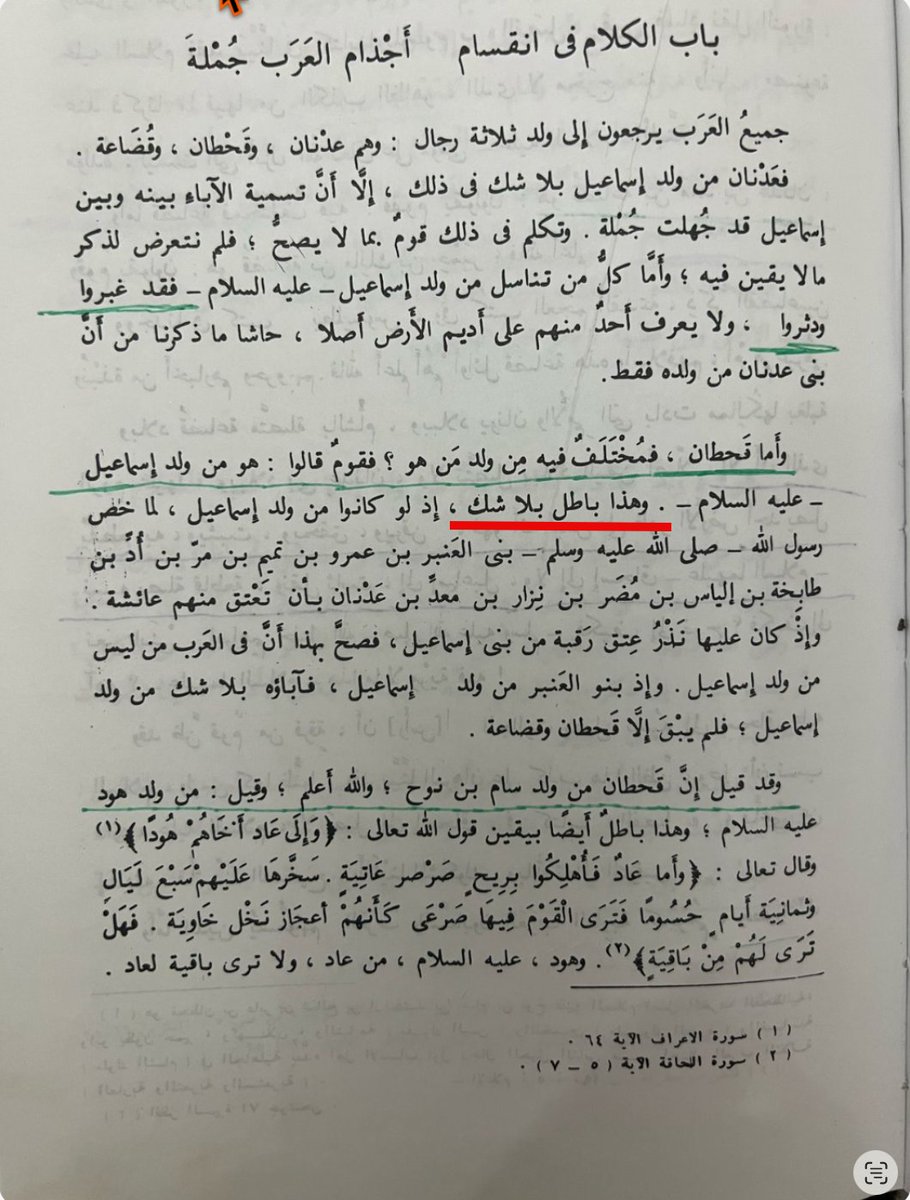 باب الكلام فى انقسام أَجْذام العَرَب جُمْلةَ
جميعُ العَرَب يرجعون إلى ولد ثلاثة رجال : وهم عدْنان ، وقَحْطان ، وقُضَاعة .
فعَدْنان من ولد إسماعيل بلا شك فى ذلك ، إلَّا أَنَّ تسمية الآباءِ بينه وبين
إسماعيل قد جُهلت جُمْلة . وتكلم فى ذلك قومٌ بما لا يصحُّ ؛ فلم نتعرض لذكر
مالا يقين فيه ؛ وأَمَّا كلُّ من تناسل من ولد إسماعيل – عليه السلام – فقد غبروا
ودثروا ، ولا يعرف أَحدٌ منهم على أَديم الأَرض أصلا ، حاشا ما ذكرنا من أَنَّ
بنى عدنان من ولده فقط .
وأَما قَحطان ، فمُخْتَلَفٌ فيه مِن ولد مَن هو ؟ فقومٌ قالوا : هو من ولد إسماعيل
– عليه السلام – . وهذا باطل بلا شك ، إذ لو كانوا من ولد إسماعيل ، لما خص
رسول الله – صلى الله عليه وسلم – بنى العَنبر بن عمرو بن تميم بن مرّ بن أُدِّ بن
طابخة بن إلياس بن مُضَر بن نِزار بن معدِّ بن عَدْنان بأن تَعْتق منهم عائشة .
وإذْ كان عليها نَذْرُ عِتق رَقبة من بنى إسماعيل ، فصحَّ بهذا أَنَّ فى العَرب من ليس
من ولد إسماعيل . وإذ بنو العَنبر من ولد إسماعيل ، فآباؤه بلا شك من ولد
إسماعيل ؛ فلم يبْقَ إلَّا قَحطان وقضاعة .
وقد قيل إنَّ قَحطان من ولد سام بن نوح ؛ والله أَعلم ؛ وقيل : من ولد هود
عليه السلام ؛ وهذا باطلٌ أَيضًا بيقين قول الله تعالى : ﴿وَإِلَى عَاد أَخَاهُمْ هُودًا﴾(١)
وقال تعالى : ﴿وأَما عَادٌ فَأُهْلِكُوا بِرِيحٍ صَرْصر عَاتِيَةٍ . سَخَّرهَا عَلَيْهِمْ سَبْعَ لَيَالٍ
وثمانِيَة أَيامٍ حُسُومًا فَتَرَى الْقَوْمَ فِيهَا صَرْعَى كَأَنَّهُمْ أَعجَاز نَخْل خَاوِيَة . فَهَلْ
تَرَى لَهُمْ مِنْ بَاقِيَةٍ﴾(٢) . وهود ، عليه السلام ، من عاد ، ولا ترى باقية لعاد .
(١) سورة الاعراف الآية ٦٤ .
(٢) سورة الحاقة الآية (٥ – ٧) .